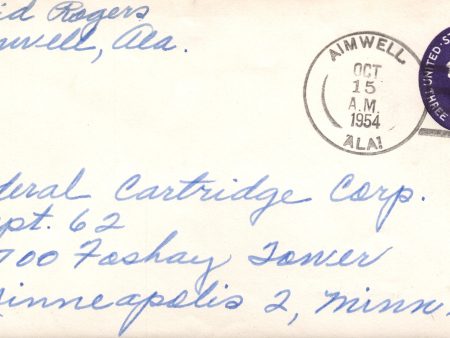 id Rogers
mwell, Ala.
AIMWELL
OCT
15
A.M.
1954
ALA.
UNITED ST
THREE
deral Cartridge Corp.
pt. 62
700 Foshay Tower
inneapolis 2, Minn.